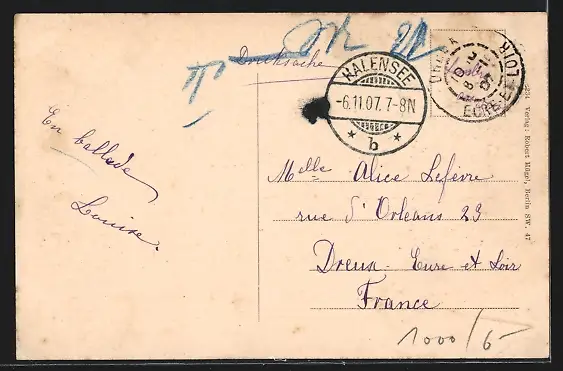 Drucksache
HALENSEE
-6.11.07. 7-8N
* b *
EURE-ET-LOIR
En ballade
Louise.
Melle Alice Lefèvre
rue d'Orléans 23
Dreux - Eure et Loir
France
Verlag: Robert Mügel, Berlin SW. 47
1000/6-